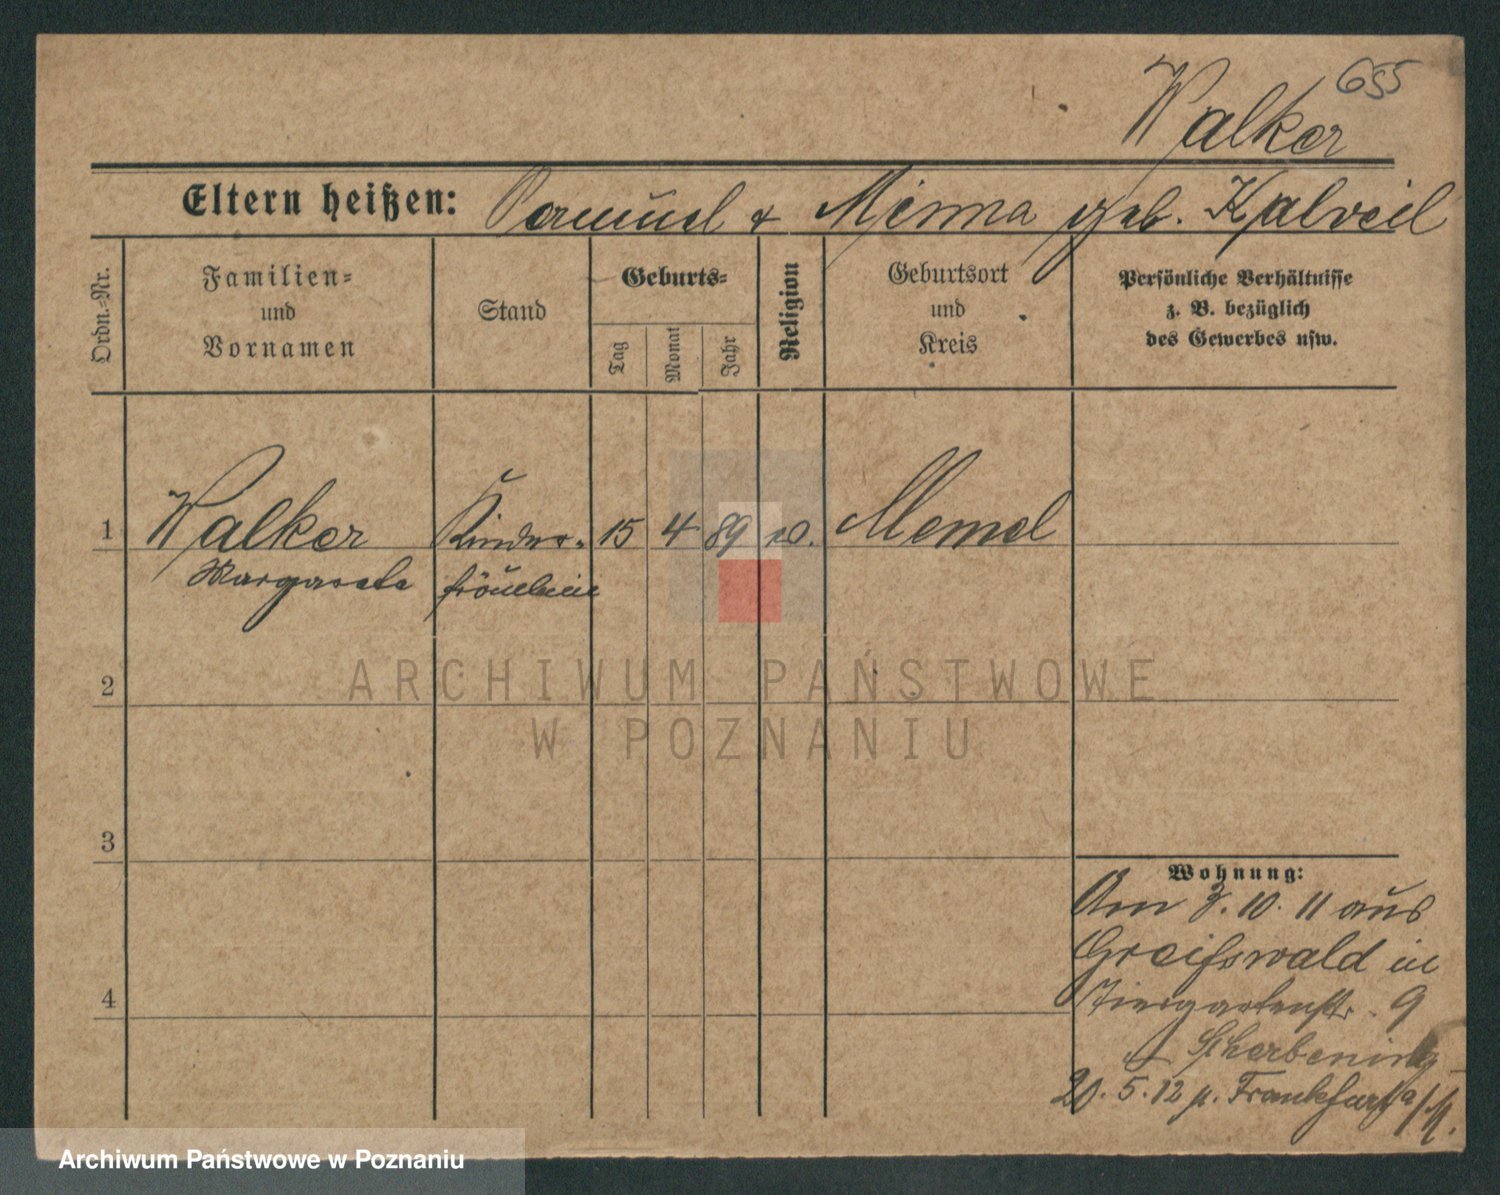 655
Walker
Eltern heißen: Samuel & Minna geb. Kalveil
Ordn.-Nr.
Familien-
und
Vornamen
Stand
Geburts-
Tag
Monat
Jahr
Religion
Geburtsort
und
Kreis
Persönliche Verhältnisse
z. B. bezüglich
des Gewerbes usw.
1 Walker Kinder- 15 4 89 ev. Memel
Margarete fräulein
2
3
4
Wohnung:
Am 3. 10. 11 aus
Greifswald in
Tiergartenstr. 9
Scherbening
20. 5. 12 n. Frankfurt a/M.
ARCHIWUM PAŃSTWOWE
W POZNANIU
Archiwum Państwowe w Poznaniu